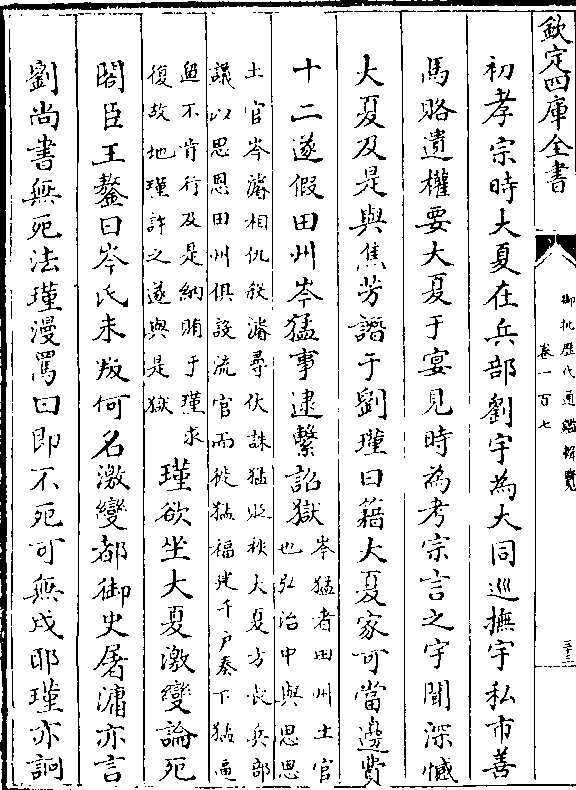 欽定四庫全書
御批歷代通鑑輯覽
卷一百七
三十三
初孝宗時大夏在兵部劉宇為大同巡撫宇私市善
馬賂遺權要大夏于宴見時為孝宗言之宇聞深憾
大夏及是與焦芳譖于劉瑾曰籍大夏家可當邊費
十二遂假田州岑猛事逮繫詔獄
岑猛者田州土官
也弘治中與思恩
土官岑濬相仇殺濬尋伏誅猛貶秩大夏方長兵部
議以思恩田州俱設流官而徙猛福建千戶奏下猛逼
遛不肯行及是納賄于瑾求
復故地瑾許之遂興是獄
瑾欲坐大夏激變論死
閣臣王鏊曰岑氏未叛何名激變都御史屠滽亦言
劉尚書無死法瑾漫罵曰即不死可無戍耶瑾亦詗